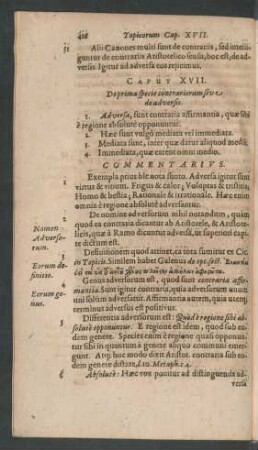 Topicorum Cap. XVII.
Alii Canones multi sunt de contrariis, sed intelli-
guntur de contrariis Aristotelico sensu, hoc est, de ad-
versis. Igitur ad adversa eos rejicimus.
CAPUT XVII.
De prima specie contrariorum seu
de adversis.
1. Adversa, sunt contraria affirmantia, quæ sibi
è regione absolutè opponuntur.
2. Hæc sunt vulgò mediata vel immediata.
3. Mediata sunt, inter quæ datur aliquod mediũ.
4. Immediata, quæ carent omni medio.
COMMENTARIUS.
Exempla prius ble nota sunto. Adversa igitur sunt
virtus & vitium. Frigus & calor; Voluptas & tristitia;
Homo & bestia; Rationale & irrationale. Hæc enim
omnia è regione absolutè adversantur.
De nomine adversorum nihil notandum, quàm
quod ea contraria dicantur ab Aristotele, & Aristote-
leis, quæ à Ramo dicuntur adversa, ut superiori capi-
te dictum est.
Nomen
Adverso-
rum.
Definitionem quod attinet, ea tota sumitur ex Cic.
in Topicis. Similem habet Galenus de opt. sect.
Eorum de-
finitio.
Genus adversorum est, quòd sunt contraria affir-
mantia. Sunt igitur contraria, quia adversantur; sunt
affirmantia quia adversantur. Affirmantia autem, quia uterq;
terminus adversorum est positivus.
Eorum ge-
nus.
Differentia adversorum est: Quòd è regione sibi ab-
solutè opponuntur. E regione est idem, quod sub eo-
dem genere. Species enim è regione quasi opponun-
tur sibi in quantum à genere aliquo communi emer-
gunt. Atq; hoc modo dixit Aristot. contraria sub eo-
dem genere existere, l. 10. Metaph. c. 4.
Absolutè: Hæc vox ponitur ad distinguenda ad-
versa